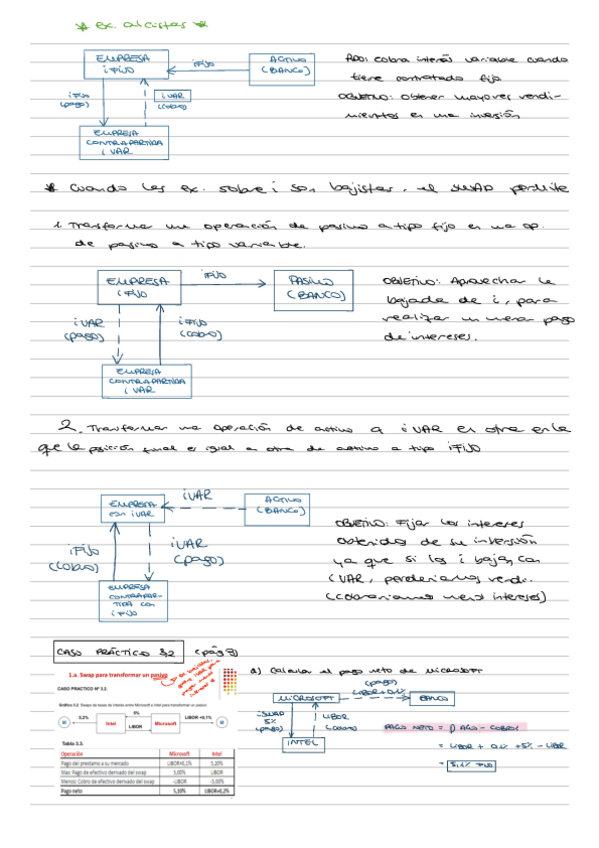 * Ex. alcistas *
EMPRESA
iFIJO
iFIJO
ACTIVO
(BANCO)
iFIJO
(pago)
iVAR
(cobro)
EMPRESA
CONTRAPARTIDA
iVAR
cobra interés variable cuando
tiene contratado fijo
OBJETIVO: Obtener mayores rendi-
mientos en una inversión
* Cuando las ex. sobre i son bajistas, el SWAP permite
1. Transformar una operación de pasivo a tipo fijo en una op.
de pasivo a tipo variable.
EMPRESA
iFIJO
iFIJO
PASIVO
(BANCO)
iVAR
(pago)
iFIJO
(cobro)
EMPRESA
CONTRAPARTIDA
iVAR
OBJETIVO: Aprovechar la
bajada de i, para
realizar un menor pago
de intereses.
2. Transformar una operación de activo a iVAR en otra en la
que la posición final es igual a otra de activo a tipo iFIJO
EMPRESA
con iVAR
iVAR
ACTIVO
(BANCO)
iFIJO
(cobro)
iVAR
(pago)
EMPRESA
CONTRAPAR-
TIDA con
iFIJO
OBJETIVO: Fijar los intereses
obtenidos de su inversión
ya que si los i bajan, con
iVAR, perderíamos rendi.
(cobraríamos menos intereses)
CASO PRÁCTICO 3.2 (pág 8)
1.a. Swap para transformar un pasivo
CASO PRACTICO Nº 3.2.
Gráfico 3.2. Swaps de tasas de interés entre Microsoft e Intel para transformar un pasivo.
5,2%
Intel
5%
LIBOR
Microsoft
LIBOR +0,1%
Tabla 3.3.
Operación Microsoft Intel
Pago del prestamo a su mercado LIBOR+0,1% 5,20%
Mas: Pago de efectivo derivado del swap 5,00% LIBOR
Menos: Cobro de efectivo derivado del swap -LIBOR -5,00%
Pago neto 5,10% LIBOR+0,2%
a) Calcular el pago neto de Microsoft
(pago)
MICROSOFT
LIBOR+0.1%
BANCO
iSWAP
5%
(pago)
LIBOR
(cobro)
INTEL
PAGO NETO = PAGO - COBROS
= LIBOR + 0.1 + 5% - LIBOR
= 5,1% FIJO